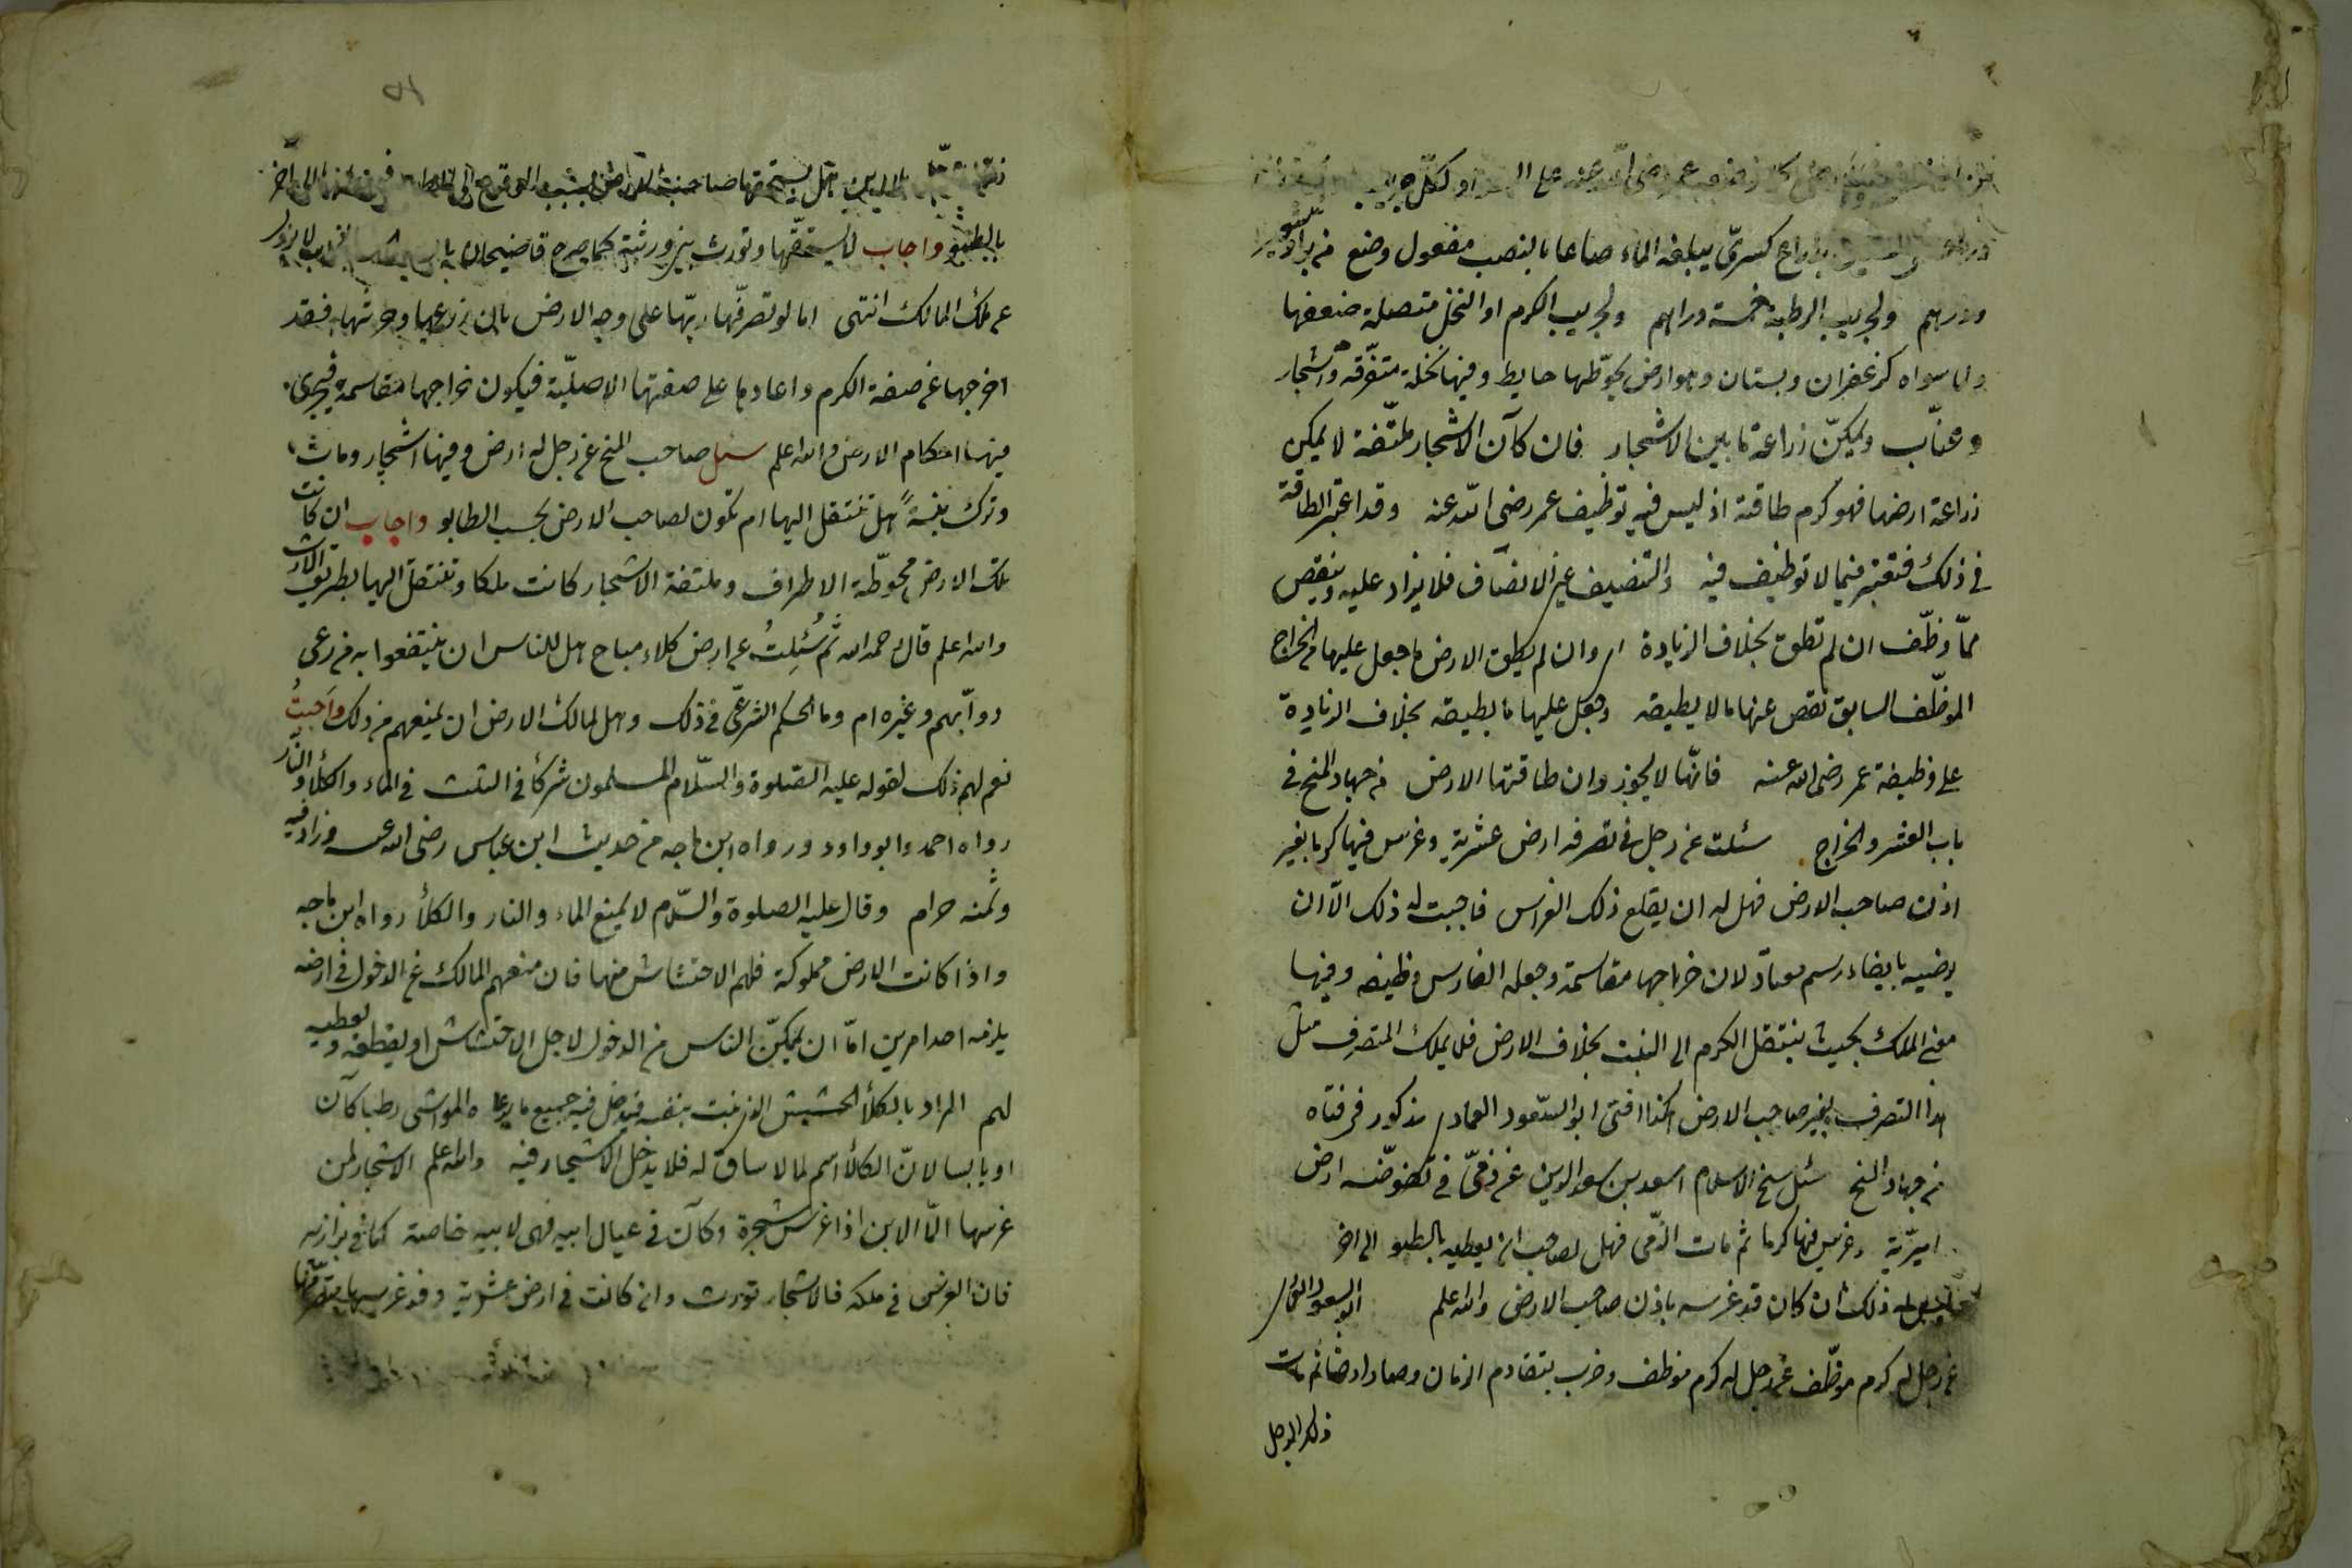 عمر رضى الله عنه على السواد لكل جريب
بذراع كسرى يبلغه الماء صاعا بالنصب مفعول وضع من بر او شعير
ودرهم ولجريب الرطبة خمسة دراهم ولجريب الكرم او النخل متصلة ضعفها
ولما سواه كزعفران وبستان وهو ارض يحوّطها حايط وفيها نخلة متفرّقة واشجار
وعنّاب ويمكنّ زراعة ما بين الاشجار فان كان الاشجار ملتفة لا يمكن
زراعة ارضها فهو كرم طاقته اذ ليس فيه توظيف عمر رضى الله عنه وقد اعتبر الطاقة
فى ذلك فتعتبر فيما لا توظيف فيه والتنصيف عين الانصاف فلا يزاد عليه وينقص
ممّا وظّف ان لم تطق بخلاف الزيادة اى وان لم يطق الارض ما جعل عليها من الخراج
الموظّف السابق نقص عنها ما لا يطيقه وجعل عليها ما يطيقه بخلاف الزيادة
على وظيفة عمر رضى الله عنه فانّها لا يجوز وان طاقتها الارض من جهاد المنح فى
باب العشر والخراج سئلت عن رجل فى تصرفه ارض عشرية وغرس فيها كرما بغير
اذن صاحب الارض فهل له ان يقلع ذلك الغراس فاجبت له ذلك الّا ان
يرضيه بايفاء رسم معتاد لان خراجها مقاسمة وجعله الغارس وظيفه وفيها
معنى الملك بحيث ينتقل الكرم الى البنت بخلاف الارض فلا يملك المتصرف مثل
هذا التصرف بغير صاحب الارض هكذا افتى ابو السّعود العمادى مذكور فى فتاه
من جهاد المنح سئل شيخ الاسلام اسعد بن سعد الدين عن ذمّى فى تفوّضه ارض
اميرّية وغرس فيها كرما ثم مات الذمّى فهل لصاحب ان يعطيه بالطپو الى اخر
ذلك ان كان قد غرسه باذن صاحب الارض والله اعلم ابو السعود العمادى
عن رجل له كرم موظّف عن رجل له كرم موظف وخرب بتقادم الزمان وصار ارضا ثم مات
ذلك الرجل
هل يستحقها صاحب الارض بسبب الى اخر
بالطپو واجاب لا يستحقّها وتورث بين ورثته كما صرح قاضيخان لا يزول
عن ملك المالك انتهى اما لو تصرفّها ربّها على وجه الارض بان زرعها وحرثها فقد
اخرجها عن صفة الكرم واعادها على صفتها الاصليّة فيكون خراجها مقاسمة فيجرى
فيها احكام الارض والله اعلم سئل صاحب المنح عن رجل له ارض وفيها اشجار ومات
وترك بنتاً هل تنتقل اليها ام تكون لصاحب الارض بحسب الطابو واجاب ان كانت
تلك الارض محوطّة الاطراف وملتفة الاشجار كانت ملكا وتنتقل اليها بطريق الارث
والله اعلم قال رحمه الله ثم سُئِلتُ عن ارض كلاء مباح هل للناس ان ينتفعوا به من رعى
دوابّهم وغيره ام وما الحكم الشرعىّ فى ذلك وهل لمالك الارض ان يمنعهم من ذلك واَجبتُ
نعم لهم ذلك لقوله عليه الصّلوة والسّلام المسلمون شركأ فى الثلث فى الماء والكلأ والنّار
رواه احمد وابو داود ورواه ابن ماجه من حديث ابن عباس رضى الله عنه وزاد فيه
وثمنه حرام وقال عليه الصلوة والسّلام لا يمنع الماء والنار والكلأ رواه ابن ماجه
واذا كانت الارض مملوكة فلهم الاحتشاش منها فان منعهم المالك عن الدخول فى ارضه
يلزمه احد امرين امّا ان يمكنّ الناس من الدخول لاجل الاحتشاش او يقطعه ويعطيه
لهم المراد بالكلأ الحشيش الذى ينبت بنفسه فيدخل فيه جميع ما يرعاه المواشى رطبا كان
او يابسا لانّ الكلأ اسم لما لا ساق له فلا يدخل الاشجار فيه والله اعلم الاشجار لمن
غرسها الّا الابن اذا غرس شجرة وكان فى عيال ابيه فهى لابيه خاصة كما فى بزازيه
فان الغرس فى ملكه فالاشجار تورث وان كانت فى ارض عشرية وقد غرسها متصرّفها